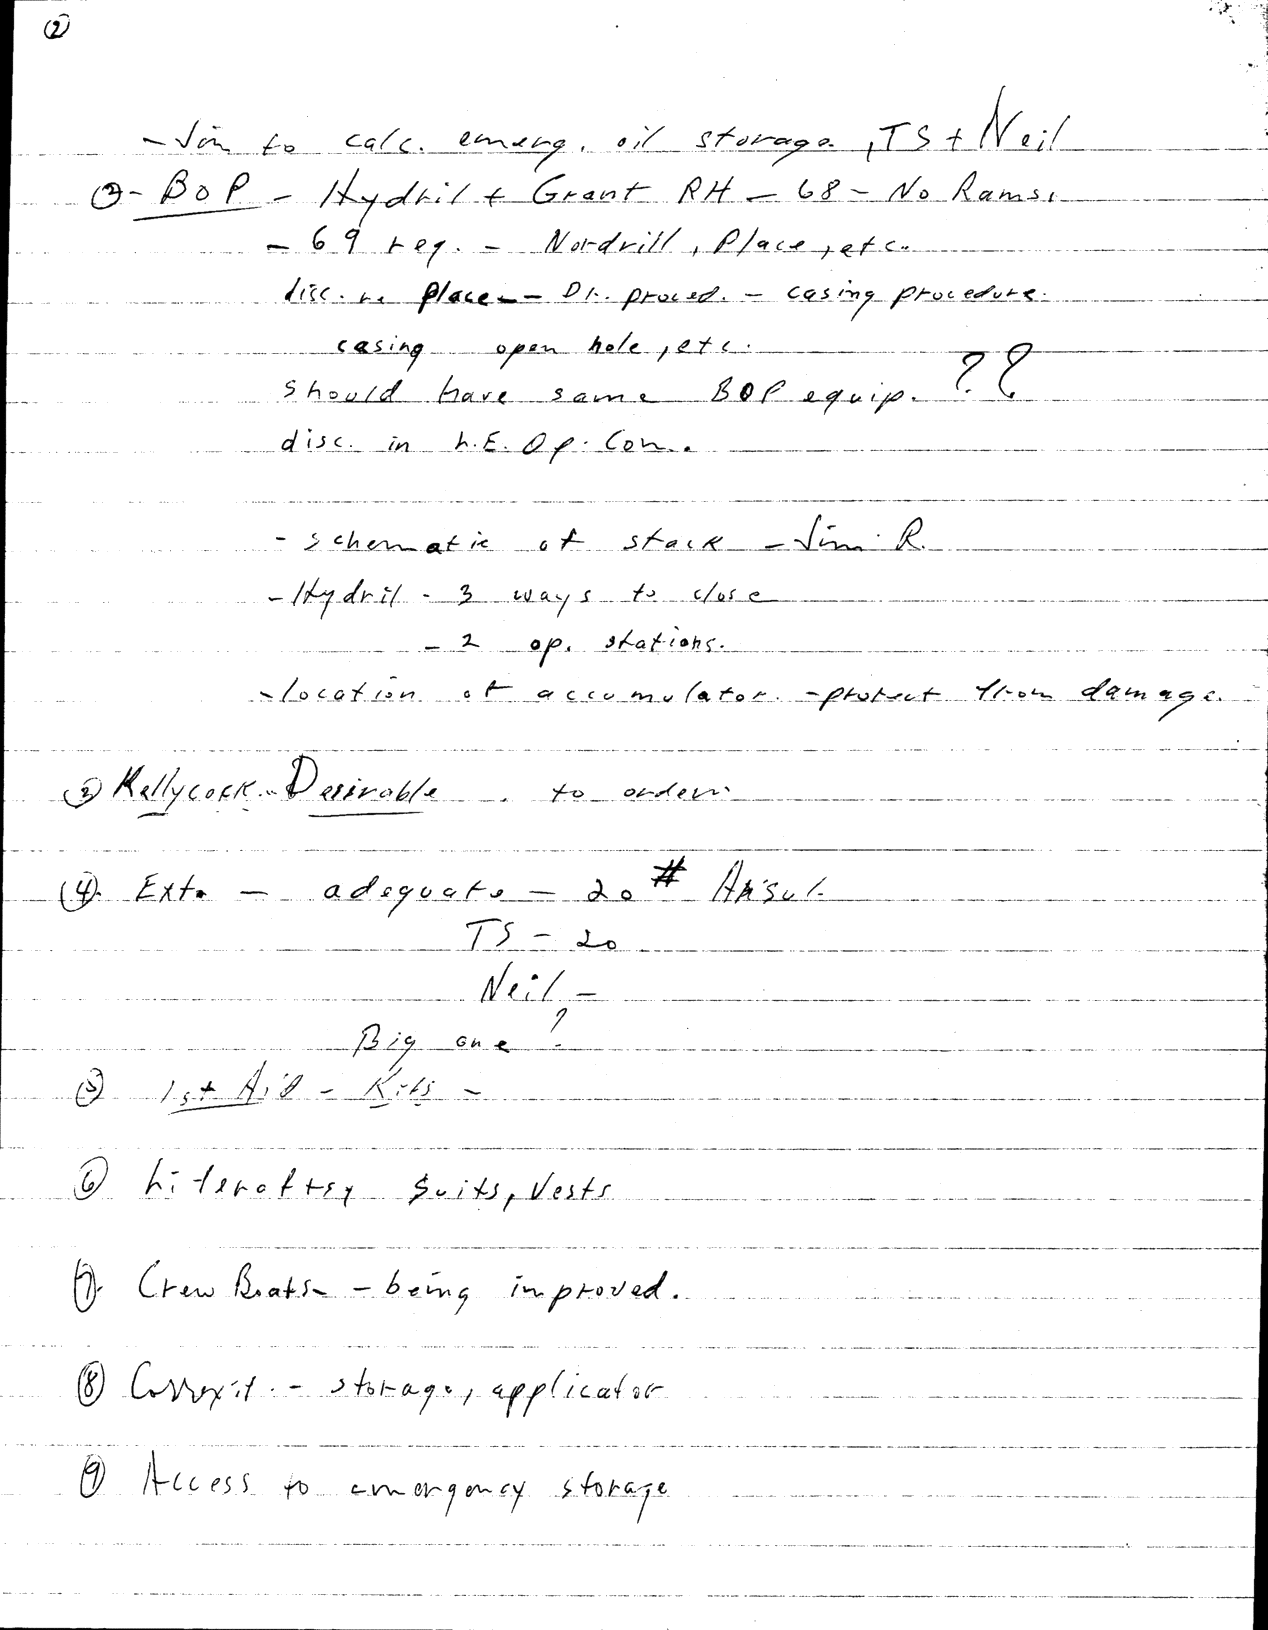 ②
- Jim to calc. emerg. oil storage, TS + Neil
②- BOP - Hydril + Grant RH - 68 - No Rams.
- 69 reg. - Nordrill, Place, etc.
disc. re Place - Dr. proced. - casing procedure.
casing open hole, etc.
should have same BOP equip. ??
disc. in L.E. Op. Com.
- schematic of stack - Jim R.
- Hydril - 3 ways to close
- 2 op. stations.
- location of accumulator. - protect from damage.
③ Kellycock - Desirable. to order.
④. Ext. - adequate - 20 # Ansul.
TS - 20
Neil -
Big one ?
⑤ 1st Aid - Kits -
⑥ Suits, Vests
⑦. Crew Boats - being improved.
⑧ Correxit. - storage, applicator
⑨ Access to emergency storage